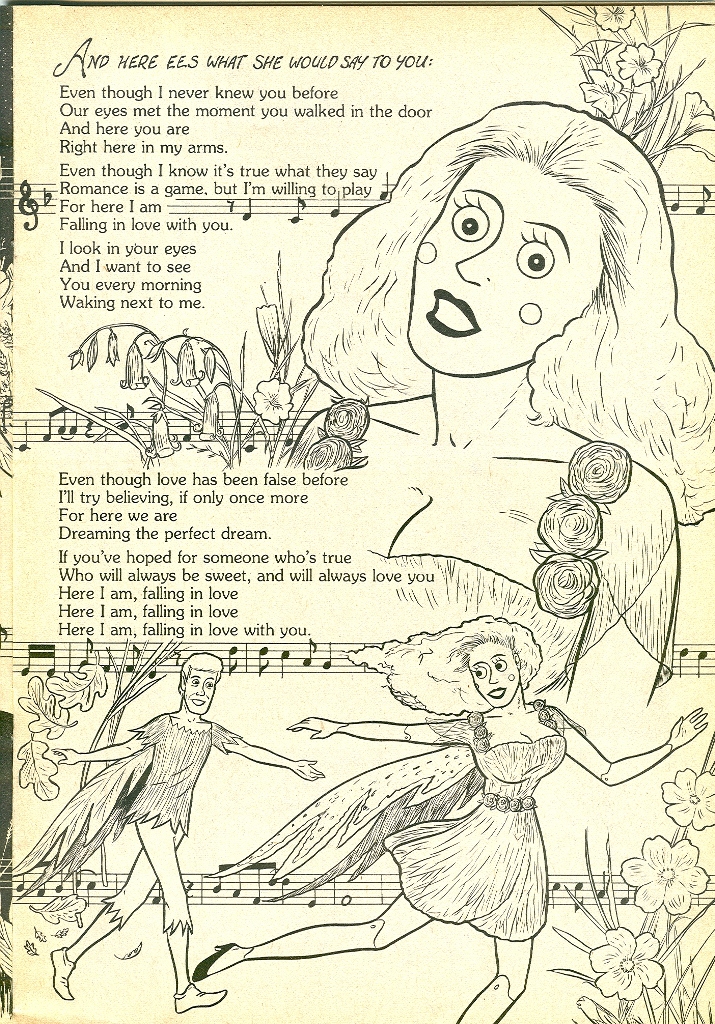 AND HERE EES WHAT SHE WOULD SAY TO YOU:
Even though I never knew you before
Our eyes met the moment you walked in the door
And here you are
Right here in my arms.
Even though I know it's true what they say
Romance is a game, but I'm willing to play
For here I am
Falling in love with you.
I look in your eyes
And I want to see
You every morning
Waking next to me.
Even though love has been false before
I'll try believing, if only once more
For here we are
Dreaming the perfect dream.
If you've hoped for someone who's true
Who will always be sweet, and will always love you
Here I am, falling in love
Here I am, falling in love
Here I am, falling in love with you.